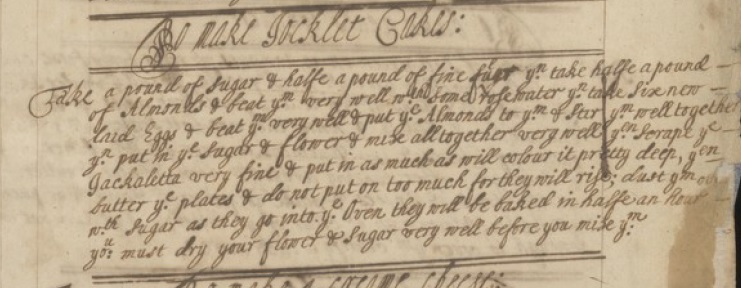 To make Jocklet Cakes:
Take a pound of sugar & halfe a pound of fine yn take halfe a pound
of Almonds & beat ym very well wth some rosewater yn take six new
laid Eggs & beat ym very well & put ye Almonds to ym & stir ym well together
yn put in ye sugar & flower & mix all together very well yen scrape ye
Jachaletta very fine & put in as much as will colour it pretty deep, yen
butter ye plates & do not put on too much for they will rise; dust ym
wth sugar as they go into ye Oven they will be baked in halfe an hour
you must dry your flower & sugar very well before you mix ym
To make a creame cheese: